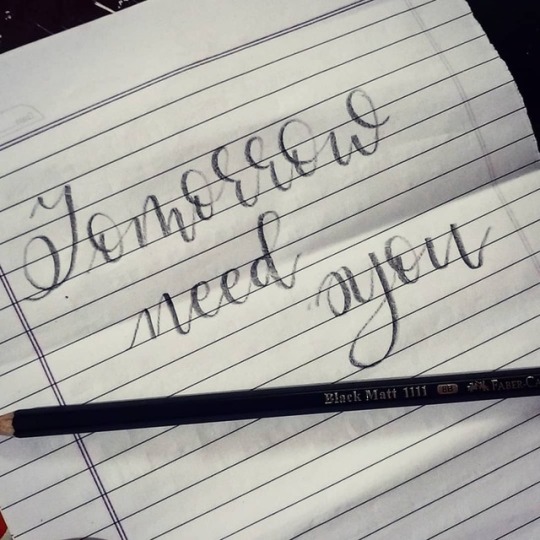 Tomorrow
need you
Black Matt 1111 HB FABER-CA